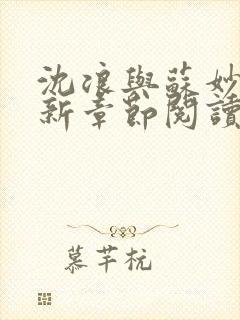 沈浪與蘇妙
新章節閱讀
慕芊杭